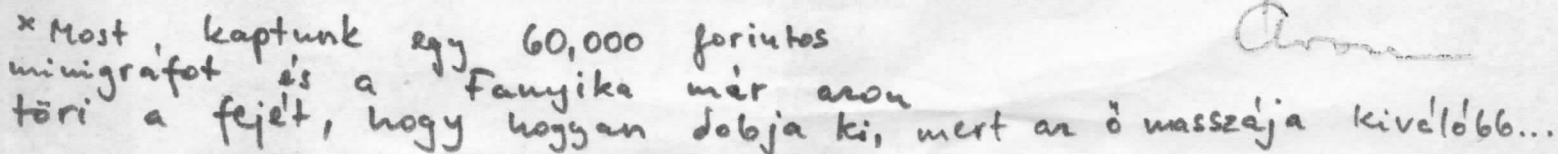 * Most, kaptunk egy 60,000 forintos
minigráfot és a Fanyika már azon
töri a fejét, hogy hogyan dobja ki, mert az ő masszája kiválóbb...